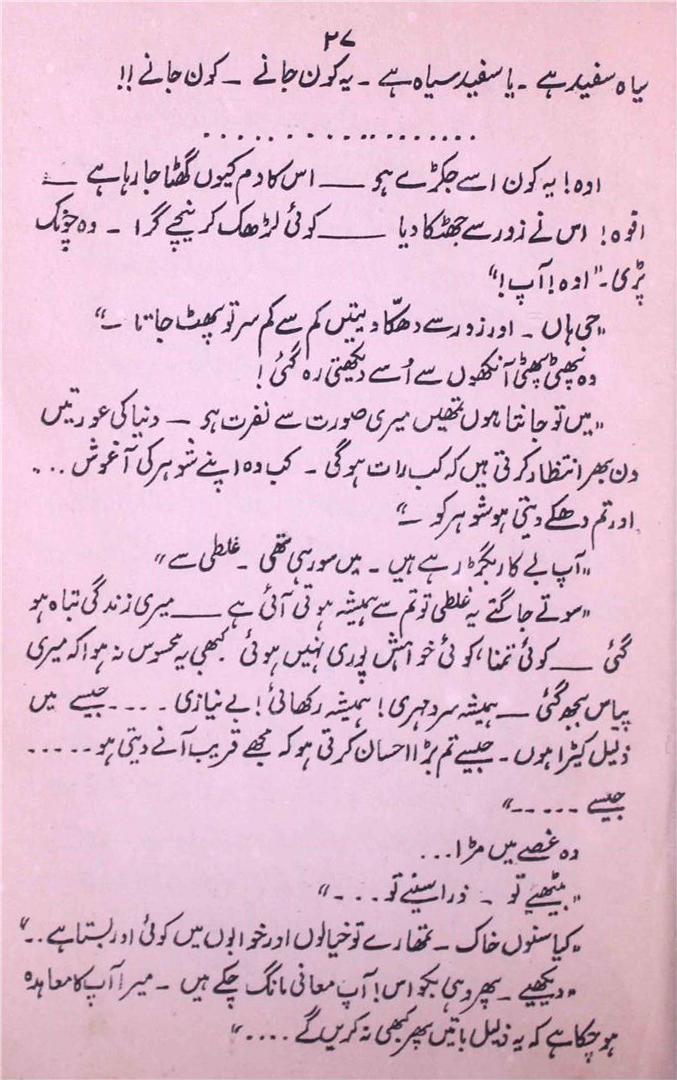 ۲۷
سیاہ سفید ہے ۔ یا سفید سیاہ ہے ۔ یہ کون جانے ۔ کون جانے !!
. . . . . . . . . . . . . . . . . . .
اوہ! یہ کون اسے جکڑے ہو ــــ اس کا دم کیوں گھٹا جا رہا ہے ــ
افوہ! اس نے زور سے جھٹکا دیا ــــ کوئی لڑھک کر نیچے گرا ۔ وہ چونک
پڑی۔ "اوہ! آپ!"
"جی ہاں ۔ اور زور سے دھکّا دیتیں کم سے کم سر تو پھٹ جاتا ۔"
وہ پھٹی پھٹی آنکھوں سے اُسے دیکھتی رہ گئی!
"میں تو جانتا ہوں تمھیں میری صورت سے نفرت ہو ــ دنیا کی عورتیں
دن بھر انتظار کرتی ہیں کہ کب رات ہوگی ۔ کب وہ اپنے شوہر کی آغوش ...
اور تم دھکے دیتی ہو شوہر کو ۔"
"آپ بے کار بگڑ رہے ہیں ۔ میں سو رہی تھی ۔ غلطی سے"
"سوتے جاگتے یہ غلطی تو تم سے ہمیشہ ہوتی آئی ہے ــــ میری زندگی تباہ ہو
گئی ــــ کوئی تمنا، کوئی خواہش پوری نہیں ہوئی کبھی یہ محسوس نہ ہوا کہ میری
پیاس بجھ گئی ــ ہمیشہ سرد مہری! ہمیشہ رکھائی! بے نیازی ۔ ۔ ۔ ۔ جیسے میں
ذلیل کیڑا ہوں ۔ جیسے تم بڑا احسان کرتی ہو کہ مجھے قریب آنے دیتی ہو ۔ ۔ ۔ ۔ ۔
جیسے ۔ ۔ ۔ ۔ ۔"
وہ غصے میں مڑا ...
"بیٹھیے تو ۔ ذرا سنیے تو ۔ ۔ ۔ ۔"
"کیا سنوں خاک ۔ تمھارے تو خیالوں اور خوابوں میں کوئی اور بستا ہے .."
"دیکھیے ۔ پھر وہی بکواس! آپ معافی مانگ چکے ہیں ۔ میرا آپ کا معاہدہ
ہو چکا ہے کہ یہ ذلیل باتیں پھر کبھی نہ کریں گے ...."